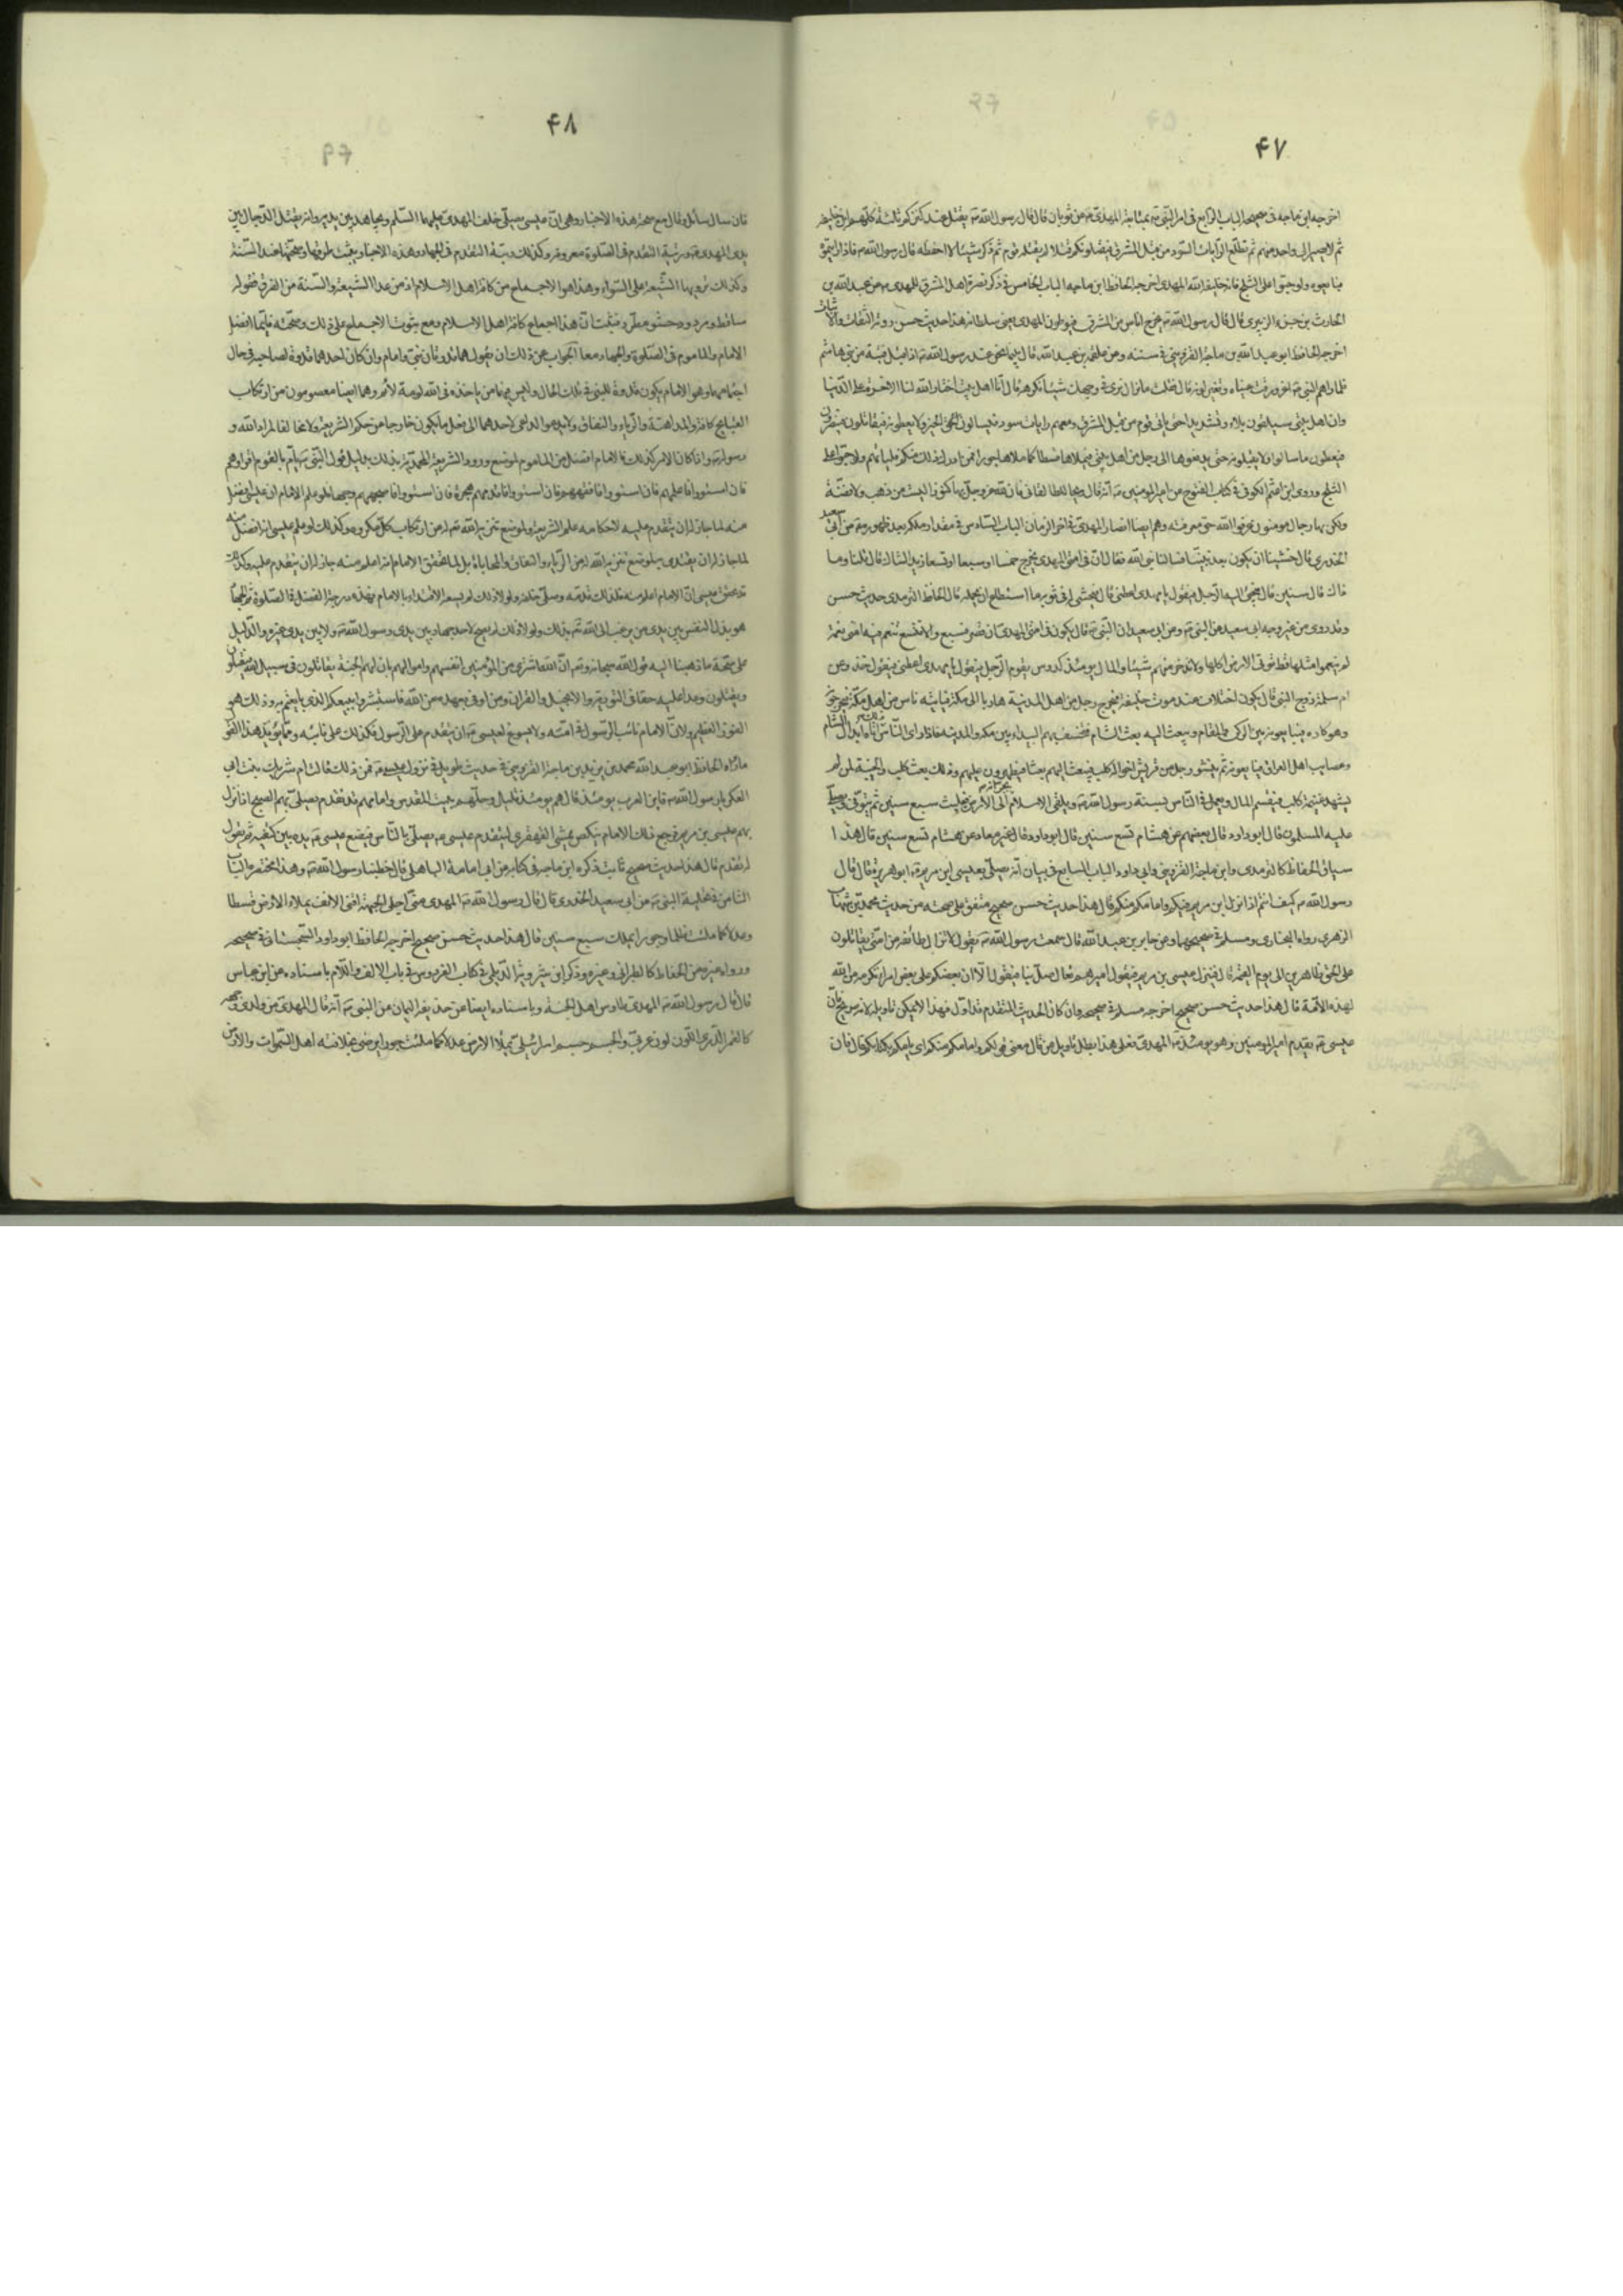 ۴۷
اخرجه ابن ماجه فی صحیحه الباب الرابع فی امر النبی ص بمبایعة المهدی ع عن ثوبان قال قال رسول الله ص یقتتل عند کنزکم ثلثة کلهم ابن خلیفة
ثم لا یصیر الی واحد منهم ثم تطلع الرایات السود من قبل المشرق فیقتلونکم قتلا لم یقتله قوم ثم ذکر شیئا لا احفظه قال رسول الله ص فاذا رایتموه
فبایعوه ولو حبوا علی الثلج فانه خلیفة الله المهدی اخرجه الحافظ ابن ماجه الباب الخامس فی ذکر نصرة اهل المشرق للمهدی ع عن عبد الله بن
الحارث بن جزء الزبیدی قال قال رسول الله ص یخرج اناس من المشرق فیوطون للمهدی یعنی سلطانه هذا حدیث حسن روته الثقات والاثبات
اخرجه الحافظ ابو عبد الله بن ماجة القزوینی فی سننه وعن علقمة بن عبد الله قال بینما نحن عند رسول الله ص اذ اقبل فتیة من بنی هاشم
فلما راهم النبی ص اغرورقت عیناه وتغیر لونه قال فقلت ما نزال نری فی وجهک شیئا نکرهه قال انا اهل بیت اختار الله لنا الاخرة علی الدنیا
وان اهل بیتی سیلقون بعدی بلاء وتشریدا حتی یاتی قوم من قبل المشرق ومعهم رایات سود فیسالون الخیر ولا یعطونه فیقاتلون فینصرون
فیعطون ما سالوا ولا یقبلونه حتی یدفعوها الی رجل من اهل بیتی فیملاها قسطا کما ملاوها جورا فمن ادرک ذلک منکم فلیاتهم ولو حبوا علی
الثلج وروی ابن اعثم الکوفی فی کتاب الفتوح عن امیر المومنین ع انه قال ویحا للطالقان فان لله عز وجل بها کنوزا لیست من ذهب ولا فضة
ولکن بها رجال مومنون عرفوا الله حق معرفته وهم ایضا انصار المهدی فی اخر الزمان الباب السادس فی مقدار ملکه بعد ظهوره ع عن ابی سعید
الخدری قال خشینا ان یکون بعد نبینا حدث فسالنا نبی الله فقال ان فی امتی المهدی یخرج خمسا او سبعا او تسعا زید الشاک قال قلنا وما
ذاک قال سنین قال فیجیء الیه الرجل فیقول یا مهدی اعطنی قال فیحثی له فی ثوبه ما استطاع ان یحمله قال الحافظ الترمذی حدیث حسن
وقد روی من غیر وجه ابی سعید عن النبی ص وعن ابی سعید ان النبی ص قال یکون فی امتی المهدی ان قصر فسبع والا فتسع تنعم فیه امتی نعمة
لم یتنعموا مثلها قط توتی الارض اکلها ولا تدخر منهم شیئا والمال یومئذ کدوس یقوم الرجل فیقول یا مهدی اعطنی فیقول خذ وعن
ام سلمة زوج النبی قال یکون اختلاف عند موت خلیفة فیخرج رجل من اهل المدینة هاربا الی مکة فیاتیه ناس من اهل مکة فیخرجونه
وهو کاره فیبایعونه بین الرکن والمقام ویبعث الیه بعث الشام فتخسف بهم البیداء بین مکة والمدینة فاذا رای الناس ذلک اتاه ابدال الشام
وعصایب اهل العراق فیبایعونه ثم ینشو رجل من قریش اخواله کلب فیبعث الیهم بعثا فیظهرون علیهم وذلک بعث کلب والخیبة لمن لم
یشهد غنیمة کلب فیقسم المال ویعمل فی الناس بسنة رسول الله ص ویلقی الاسلام بجرانه الی الارض فیلبث سبع سنین ثم یتوفی ویصلی
علیه المسلمون قال ابو داود قال بعضهم عن هشام تسع سنین قال ابو داود قال غیر معاذ عن هشام تسع سنین قال هذا
سیاق الحفاظ کالترمذی وابن ماجة القزوینی وابی داود الباب السابع فی بیان انه یصلی بعیسی ابن مریم ع ابو هریرة قال قال
رسول الله ص کیف انتم اذا نزل ابن مریم فیکم وامامکم منکم قال هذا حدیث حسن صحیح متفق علی صحته من حدیث محمد بن شهاب
الزهری رواه البخاری ومسلم فی صحیحیهما وعن جابر بن عبد الله قال سمعت رسول الله ص یقول لا تزال طائفة من امتی یقاتلون
علی الحق ظاهرین الی یوم القیمة قال فینزل عیسی بن مریم فیقول امیرهم تعال صل بنا فیقول الا ان بعضکم علی بعض امراء تکرمة من الله
لهذه الامة قال هذا حدیث حسن صحیح اخرجه مسلم فی صحیحه وان کان الحدیث المتقدم قد اول فهذا لا یمکن تاویله لانه صریح فان
عیسی ع یقدم امیر المومنین وهو یومئذ المهدی فعلی هذا بطل تاویل من قال معنی قوله وامامکم منکم ای یامکم بکتابکم قال فان
۴۸
فان سال سائل وقال مع صحة هذه الاخبار وهی ان عیسی یصلی خلف المهدی علیهما السلم ویجاهد بین یدیه وانه یقتل الدجال بین
یدی المهدی ع ورتبة التقدم فی الصلوة معروفة وکذلک رتبة التقدم فی الجهاد وهذه الاخبار یثبت طرقها وصحتها عند السنة
وکذلک ترویها الشیعة علی السواء وهذا هو الاجماع من کافة اهل الاسلام اذ من عدا الشیعة والسنة من الفرق فقوله
ساقط مردود وحشو مطرح فثبت ان هذا اجماع کافة اهل الاسلام ومع ثبوت الاجماع علی ذلک وصحته فایما افضل
الامام والماموم فی الصلوة والجهاد معا الجواب عن ذلک ان نقول هما قدوتان نبی وامام وان کان احدهما قدوة لصاحبه فی حال
اجتماعهما وهو الامام یکون قدوة للنبی فی تلک الحال ولیس فیهما من یاخذه فی الله لومة لائم وهما ایضا معصومون من ارتکاب
القبایح کافة والمداهنة والریاء والنفاق ولا یدعو الداعی لاحدهما الی فعل ما یکون خارجا عن حکم الشریعة ولا مخالفا لمراد الله و
رسوله ص واذا کان الامر کذلک فالامام افضل من الماموم لموضع ورود الشریعة المحمدیة بذلک بدلیل قول النبی ص یوم بالقوم اقراوهم
فان استووا فاعلمهم فان استووا فافقههم فان استووا فاقدمهم هجرة فان استووا فاصبحهم وجها فلو علم الامام ان عیسی افضل
منه لما جاز له ان یتقدم علیه لاحکامه علم الشریعة ولموضع تنزیه الله له من ارتکاب کل مکروه وکذلک لو علم عیسی انه افضل منه
لما جاز له ان یقتدی به لموضع تنزیه الله له من الریاء والنفاق والمحاباة بل لما تحقق الامام انه اعلم منه جاز له ان یتقدم علیه وکذلک
قد تحقق عیسی ان الامام اعلم منه فلذلک قدمه وصلی خلفه ولولا ذلک لم یسعه الاقتداء بالامام فهذه درجة الفضل فی الصلوة ثم الجهاد
هو بذل النفس بین یدی من یرغب الی الله تع بذلک ولولا ذلک لم یصح لاحد جهاد بین یدی رسول الله ص ولا بین یدی غیره والدلیل
علی صحة ما ذهبنا الیه قول الله سبحانه وتع ان الله اشتری من المومنین انفسهم واموالهم بان لهم الجنة یقاتلون فی سبیل الله فیقتلون
ویقتلون وعدا علیه حقا فی التوریة والانجیل والقران ومن اوفی بعهده من الله فاستبشروا ببیعکم الذی بایعتم به وذلک هو
الفوز العظیم ولان الامام نائب الرسول فی امته ولا یسوغ لعیسی ع ان یتقدم علی الرسول فکذلک علی نائبه ومما یوید هذا القول
ما رواه الحافظ ابو عبد الله محمد بن یزید بن ماجة القزوینی فی حدیث طویل فی نزول عیسی ع فمن ذلک قالت ام شریک بنت ابی
العکر یا رسول الله ص فاین العرب یومئذ قال هم یومئذ قلیل وجلهم ببیت المقدس وامامهم قد تقدم یصلی بهم الصبح اذا نزل
بهم عیسی بن مریم فرجع ذلک الامام ینکص یمشی القهقری لیتقدم عیسی ع یصلی بالناس فیضع عیسی ع یده بین کتفیه ثم یقول
له تقدم قال هذا حدیث صحیح ثابت ذکره ابن ماجه فی کتابه عن ابی امامة الباهلی قال خطبنا رسول الله ص وهذا مختصره الباب
الثامن فی تحلیة النبی ص عن ابی سعید الخدری قال قال رسول الله ص المهدی منی اجلی الجبهة اقنی الانف یملاء الارض قسطا
وعدلا کما ملئت ظلما وجورا یملک سبع سنین قال هذا حدیث حسن صحیح اخرجه الحافظ ابو داود السجستانی فی صحیحه
ورواه غیره من الحفاظ کالطبرانی وغیره وذکر ابن شیرویه الدیلمی فی کتاب الفردوس فی باب الالف واللام باسناده عن ابن عباس
قال قال رسول الله ص المهدی طاوس اهل الجنة وباسناده ایضا عن حذیفة الیمان عن النبی ص انه قال المهدی من ولدی وجهه
کالقمر الدری اللون لون عربی والجسم جسم اسرائیلی یملا الارض عدلا کما ملئت جورا یرضی بخلافته اهل السموات والارض